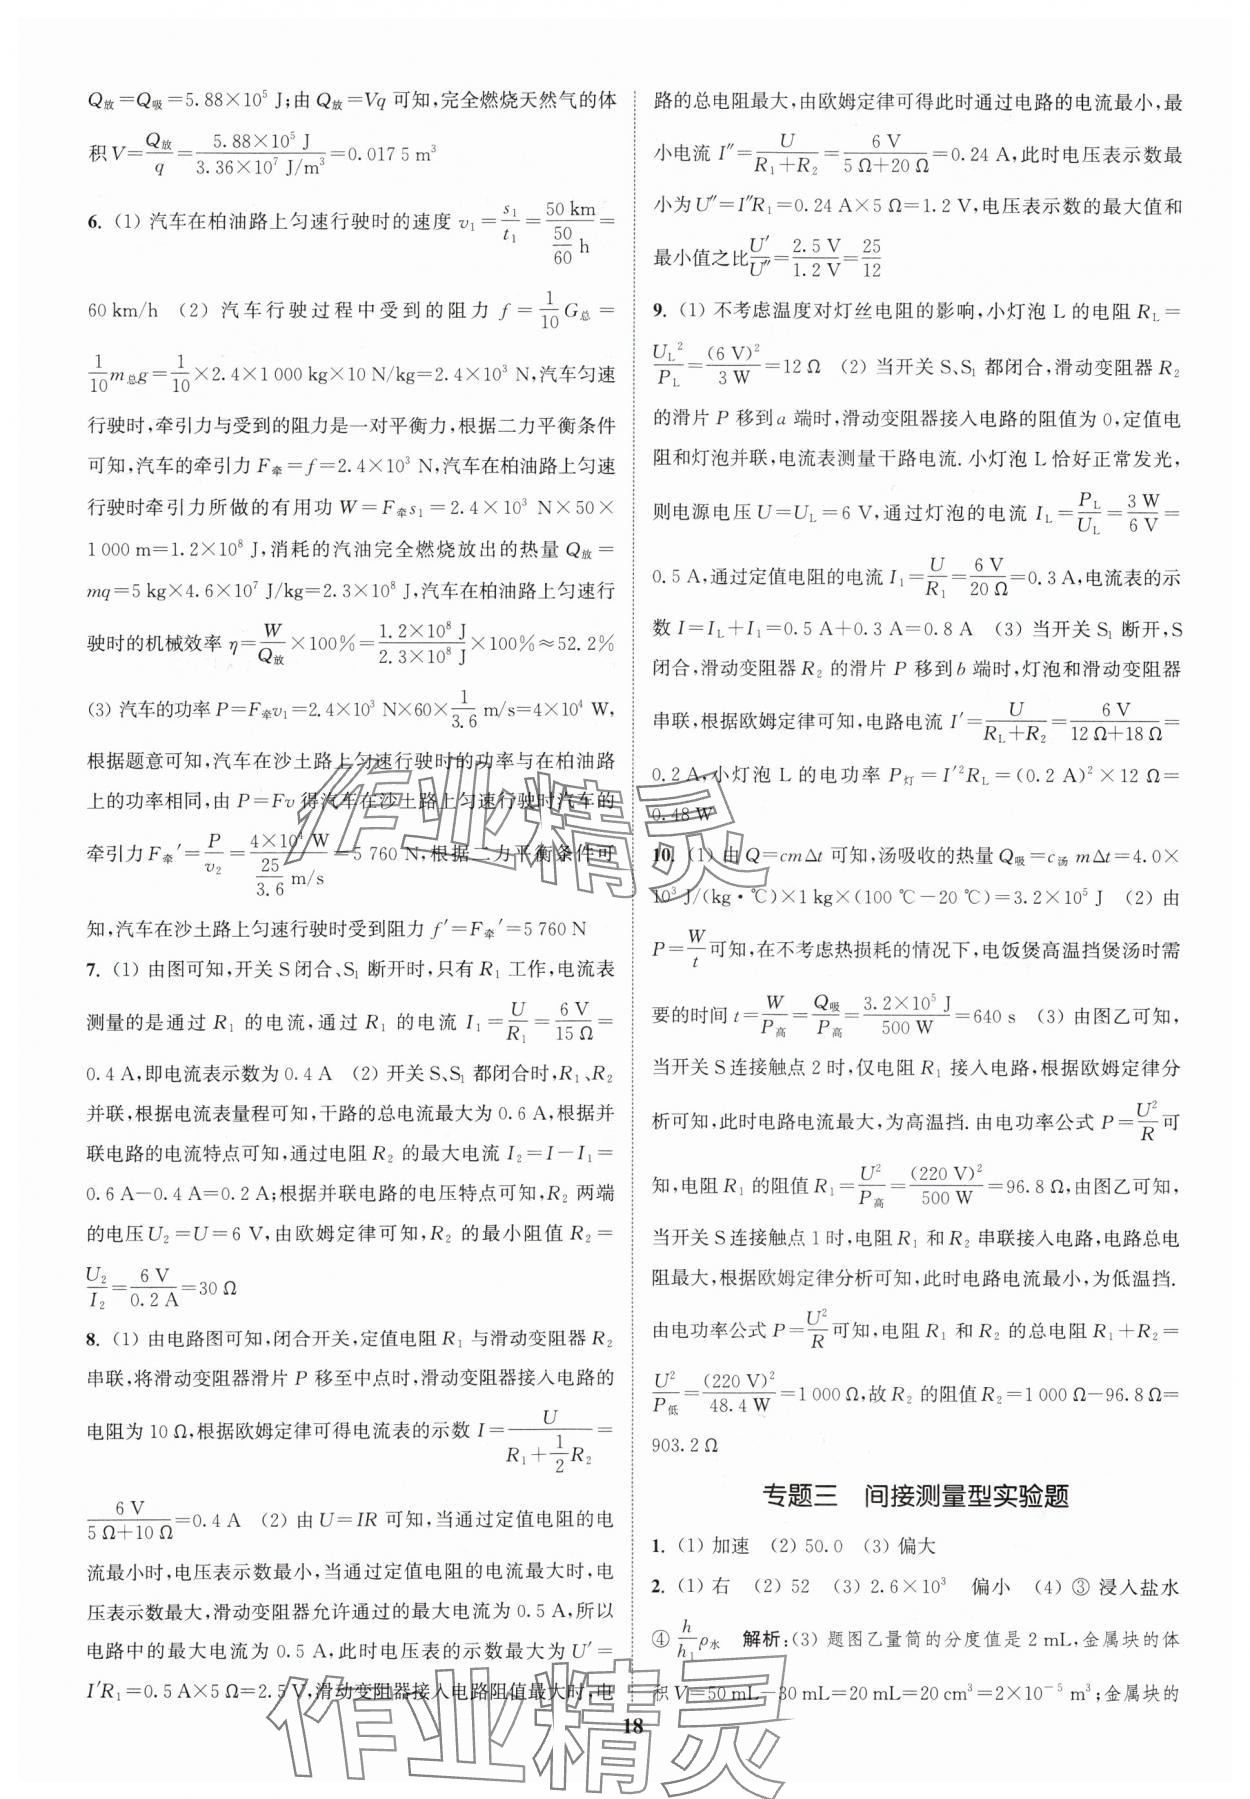 Q放=Q吸=5.88×10⁵ J;由 Q放=Vq 可知,完全燃烧天然气的体
积 V=Q放/q=5.88×10⁵ J/3.36×10⁷ J/m³=0.017 5 m³
6. (1) 汽车在柏油路上匀速行驶时的速度 v₁=s₁/t₁=50 km/(50/60 h)=
60 km/h (2) 汽车行驶过程中受到的阻力 f=1/10 G总=
1/10 m总g=1/10×2.4×1 000 kg×10 N/kg=2.4×10³ N,汽车匀速
行驶时,牵引力与受到的阻力是一对平衡力,根据二力平衡条件
可知,汽车的牵引力 F牵=f=2.4×10³ N,汽车在柏油路上匀速
行驶时牵引力所做的有用功 W=F牵s₁=2.4×10³ N×50×
1 000 m=1.2×10⁸ J,消耗的汽油完全燃烧放出的热量 Q放=
mq=5 kg×4.6×10⁷ J/kg=2.3×10⁸ J,汽车在柏油路上匀速行
驶时的机械效率 η=W/Q放×100%=1.2×10⁸ J/2.3×10⁸ J×100%≈52.2%
(3) 汽车的功率 P=F牵v₁=2.4×10³ N×60×1/3.6 m/s=4×10⁴ W,
根据题意可知,汽车在沙土路上匀速行驶时的功率与在柏油路
上的功率相同,由 P=Fv 得汽车在沙土路上匀速行驶时汽车的
牵引力 F牵′=P/v₂=4×10⁴ W/(25/3.6 m/s)=5 760 N,根据二力平衡条件可
知,汽车在沙土路上匀速行驶时受到阻力 f′=F牵′=5 760 N
7. (1) 由图可知,开关 S 闭合、S₁ 断开时,只有 R₁ 工作,电流表
测量的是通过 R₁ 的电流,通过 R₁ 的电流 I₁=U/R₁=6 V/15 Ω=
0.4 A,即电流表示数为 0.4 A (2) 开关 S、S₁ 都闭合时,R₁、R₂
并联,根据电流表量程可知,干路的总电流最大为 0.6 A,根据并
联电路的电流特点可知,通过电阻 R₂ 的最大电流 I₂=I−I₁=
0.6 A−0.4 A=0.2 A;根据并联电路的电压特点可知,R₂ 两端
的电压 U₂=U=6 V,由欧姆定律可知,R₂ 的最小阻值 R₂=
U₂/I₂=6 V/0.2 A=30 Ω
8. (1) 由电路图可知,闭合开关,定值电阻 R₁ 与滑动变阻器 R₂
串联,将滑动变阻器滑片 P 移至中点时,滑动变阻器接入电路的
电阻为 10 Ω,根据欧姆定律可得电流表的示数 I=U/(R₁+1/2 R₂)=
6 V/(5 Ω+10 Ω)=0.4 A (2) 由 U=IR 可知,当通过定值电阻的电
流最小时,电压表示数最小,当通过定值电阻的电流最大时,电
压表示数最大,滑动变阻器允许通过的最大电流为 0.5 A,所以
电路中的最大电流为 0.5 A,此时电压表的示数最大为 U′=
I′R₁=0.5 A×5 Ω=2.5 V,滑动变阻器接入电路阻值最大时,电
路的总电阻最大,由欧姆定律可得此时通过电路的电流最小,最
小电流 I″=U/(R₁+R₂)=6 V/(5 Ω+20 Ω)=0.24 A,此时电压表示数最
小为 U″=I″R₁=0.24 A×5 Ω=1.2 V,电压表示数的最大值和
最小值之比U′/U″=2.5 V/1.2 V=25/12
9. (1) 不考虑温度对灯丝电阻的影响,小灯泡 L 的电阻 R_L=
U_L²/P_L=(6 V)²/3 W=12 Ω (2) 当开关 S、S₁ 都闭合,滑动变阻器 R₂
的滑片 P 移到 a 端时,滑动变阻器接入电路的阻值为 0,定值电
阻和灯泡并联,电流表测量干路电流.小灯泡 L 恰好正常发光,
则电源电压 U=U_L=6 V,通过灯泡的电流 I_L=P_L/U_L=3 W/6 V=
0.5 A,通过定值电阻的电流 I₁=U/R₁=6 V/20 Ω=0.3 A,电流表的示
数 I=I_L+I₁=0.5 A+0.3 A=0.8 A (3) 当开关 S₁ 断开,S
闭合,滑动变阻器 R₂ 的滑片 P 移到 b 端时,灯泡和滑动变阻器
串联,根据欧姆定律可知,电路电流 I′=U/(R_L+R₂)=6 V/(12 Ω+18 Ω)=
0.2 A,小灯泡 L 的电功率 P灯=I′²R_L=(0.2 A)²×12 Ω=
0.48 W
10. (1) 由 Q=cmΔt 可知,汤吸收的热量 Q吸=c汤 mΔt=4.0×
10³ J/(kg·℃)×1 kg×(100 ℃−20 ℃)=3.2×10⁵ J (2) 由
P=W/t 可知,在不考虑热损耗的情况下,电饭煲高温挡煲汤时需
要的时间 t=W/P高=Q吸/P高=3.2×10⁵ J/500 W=640 s (3) 由图乙可知,
当开关 S 连接触点 2 时,仅电阻 R₁ 接入电路,根据欧姆定律分
析可知,此时电路电流最大,为高温挡.由电功率公式 P=U²/R 可
知,电阻 R₁ 的阻值 R₁=U²/P高=(220 V)²/500 W=96.8 Ω,由图乙可知,
当开关 S 连接触点 1 时,电阻 R₁ 和 R₂ 串联接入电路,电路总电
阻最大,根据欧姆定律分析可知,此时电路电流最小,为低温挡.
由电功率公式 P=U²/R 可知,电阻 R₁ 和 R₂ 的总电阻 R₁+R₂=
U²/P低=(220 V)²/48.4 W=1 000 Ω,故 R₂ 的阻值 R₂=1 000 Ω−96.8 Ω=
903.2 Ω
专题三 间接测量型实验题
1. (1) 加速 (2) 50.0 (3) 偏大
2. (1) 右 (2) 52 (3) 2.6×10³ 偏小 (4) ③ 浸入盐水
④ h/h₁ ρ水 解析:(3) 题图乙量筒的分度值是 2 mL,金属块的体
积 V=50 mL−30 mL=20 mL=20 cm³=2×10⁻⁵ m³;金属块的
18
作业精灵
作业精灵